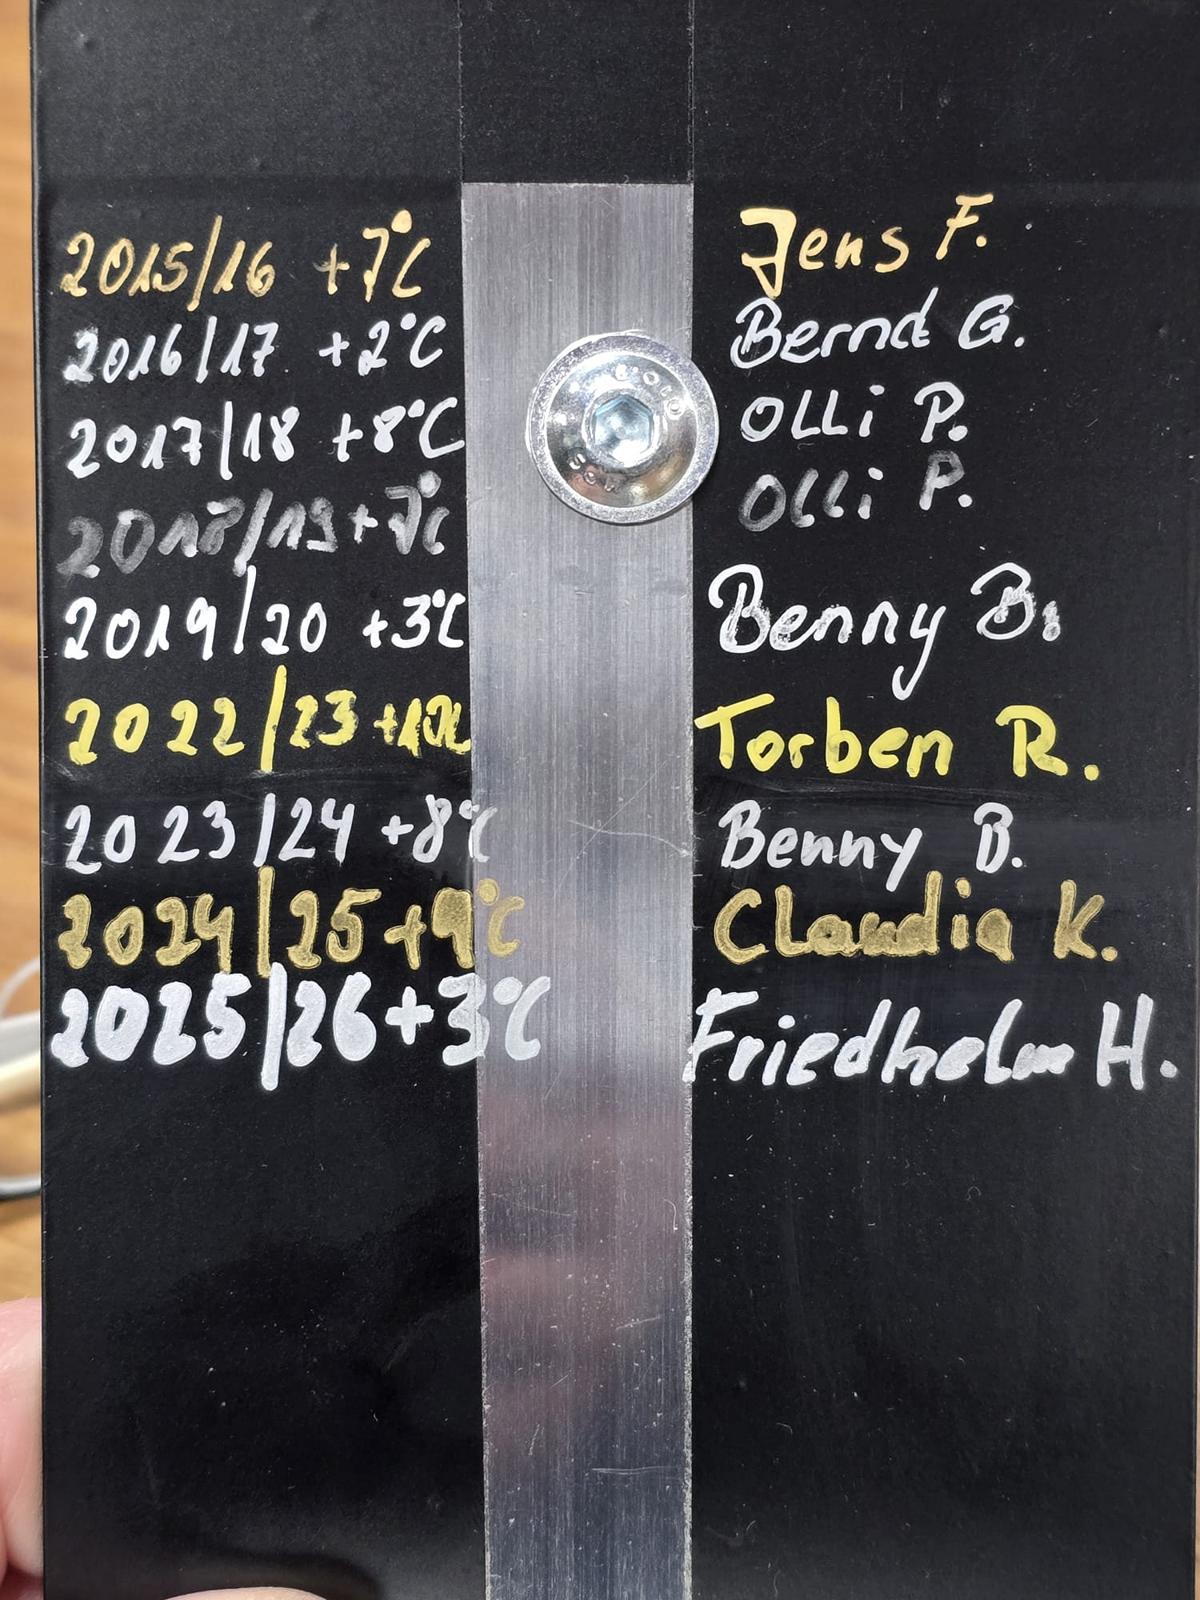 2015/16 +7°C Jens F.
2016/17 +2°C Bernd G.
2017/18 +8°C OLLi P.
2018/19 +7°C Olli P.
2019/20 +3°C Benny B.
2022/23 Torben R.
2023/24 +8°C Benny B.
2024/25 +9°C Claudia K.
2025/26 +3°C Friedhelm H.